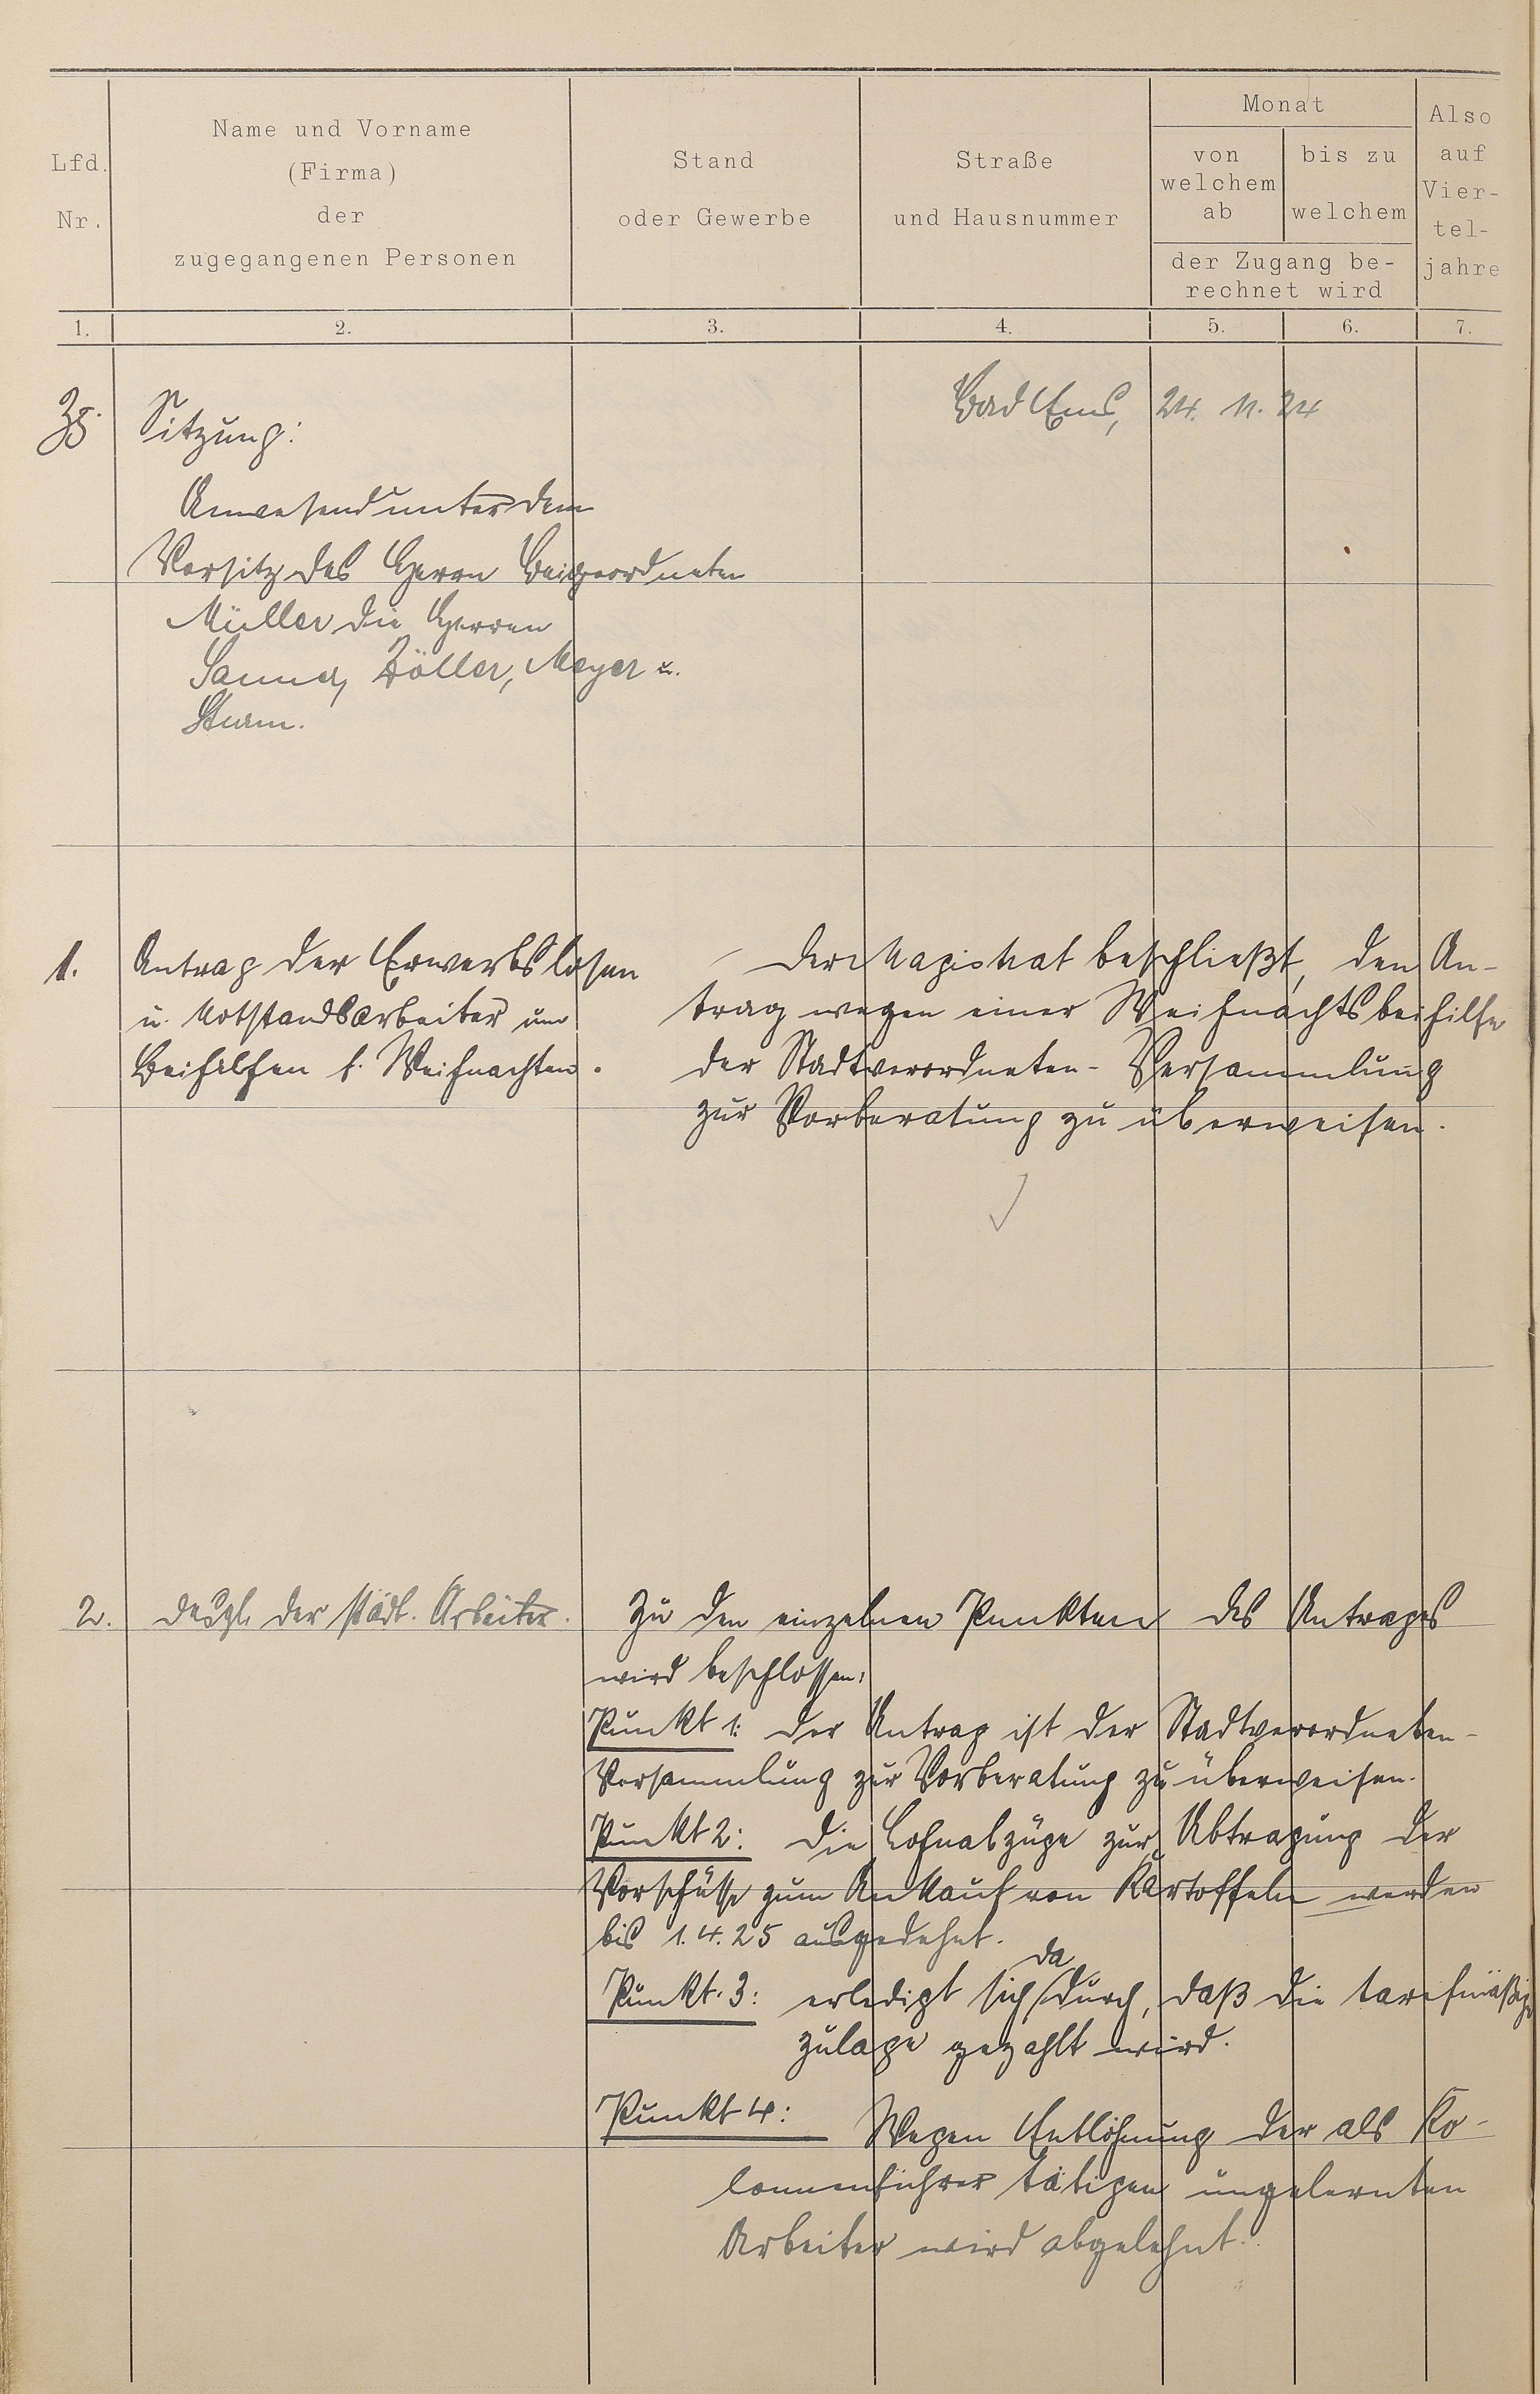 Lfd.
Nr.
Name und Vorname
(Firma)
der
zugegangenen Personen
Stand
oder Gewerbe
Straße
und Hausnummer
Monat
von
welchem
ab
bis zu
welchem
der Zugang be-
rechnet wird
Also
auf
Vier-
tel-
jahre
1. 2. 3. 4. 5. 6. 7.
Bad Ems, 24. 11. 24
Sitzung:
Anwesend unter dem
Vorsitz des Herrn Beigeordneten
Müller die Herren
Zöller, Meyer u.
Sturm.
1. Antrag der Erwerbslosen
u. Notstandsarbeiter um
Beihilfen f. Weihnachten.
Der Magistrat beschließt, den An-
trag wegen einer Weihnachtsbeihilfe
der Stadtverordneten-Versammlung
zur Vorberatung zu überweisen.
2. desgl. der städt. Arbeiter.
Zu den einzelnen Punkten des Antrages
wird beschlossen:
Punkt 1: der Antrag ist der Stadtverordneten-
Versammlung zur Vorberatung zu überweisen.
Punkt 2: Die Lohnabzüge zur Abtragung der
Vorschüsse zum Ankauf von Kartoffeln werden
bis 1.4.25 ausgedehnt.
Punkt 3: erledigt sich dadurch, daß die tarifmäßige
zulage gezahlt wird.
Punkt 4: Wegen Entlöhnung der als Ko-
lonnenführer tätigen ungelernten
Arbeiter wird abgelehnt.